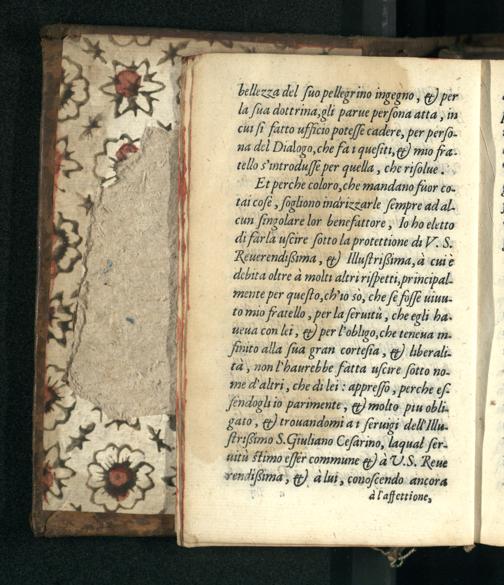 bellezza del ſuo pellegrino ingegno, & per
la ſua dottrina, gli parue perſona atta, in
cui ſi fatto vfficio poteſſe cadere, per perſo-
na del Dialogo, che fa i queſiti, & mio fra-
tello s'introduſſe per quella, che riſolue.
Et perche coloro, che mandano fuor co-
tai coſe, ſogliono indrizzarle ſempre ad al-
cun ſingolare lor benefattore, Io ho eletto
di farla uſcire ſotto la protettione di V. S.
Reuerendiſsima, & Illuſtriſsima, à cui è
debita oltre à molti altri riſpetti, principal-
mente per queſto, ch'io sò, che ſe foſſe uiuu-
to mio fratello, per la ſeruitù, che egli ha-
ueua con lei, & per l'obligo, che teneua in-
finito alla ſua gran corteſia, & liberali-
tà, non l'haurebbe fatta uſcire ſotto no-
me d'altri, che di lei: appreſſo, perche eſ-
ſendogli io parimente, & molto piu obli-
gato, & trouandomi a i ſeruigi dell'Illu-
ſtriſsimo S. Giuliano Ceſarino, laqual ſer-
uitù ſtimo eſſer commune & à V. S. Reue
rendiſsima, & à lui, conoſcendo ancora
à l'affettione,